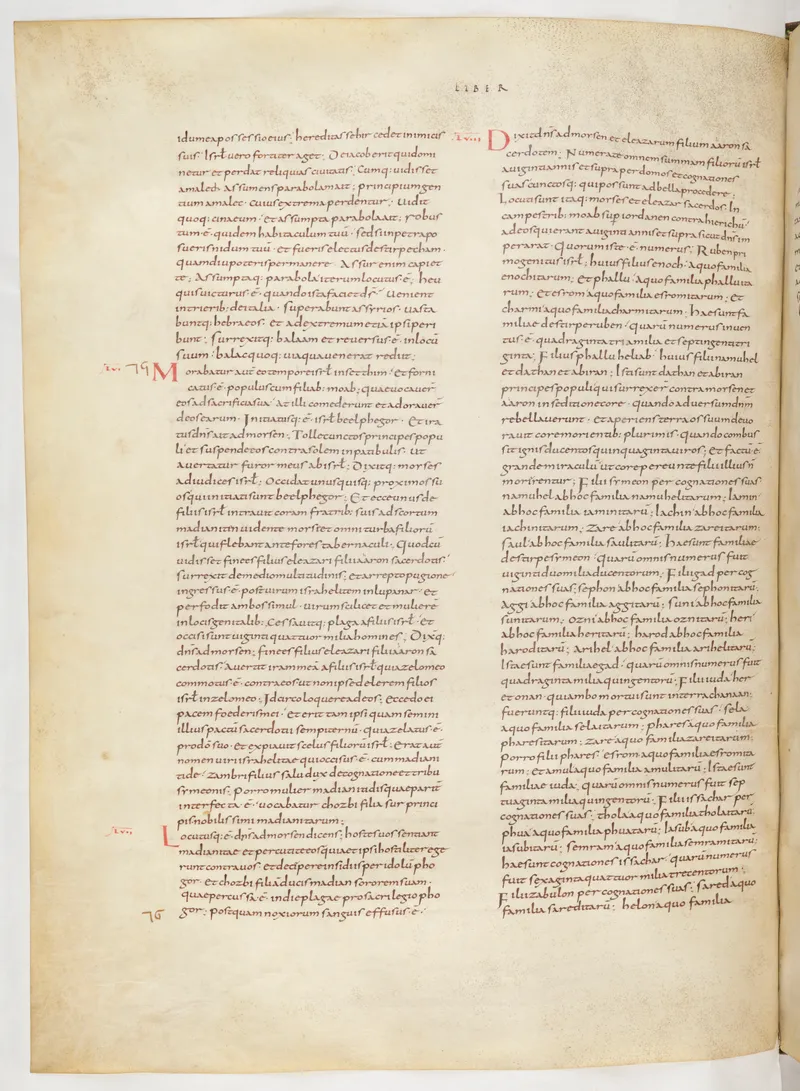 LIBER
idumea possessio eius; hereditas sebir cedet inimicis
suis; Isrł uero fortiter aget; De iacob erit qui domi
netur et perdat reliquias ciuitatis; Cumq: uidisset
amalech assumens parabolam ait; principium gen
tium amalec cuius extrema perdentur; Uidit
quoq: cinaeum et assumpta parabola ait; robus
tum ē quidem habitaculum tuū sed si in petra po
sueris nidum tuū et fueris electus de stirpe cham
quamdiu poteris permanere Assur enim capiet
te; Assumptaq: parabola iterum locutus ē; heu
quis uicturus ē quando ista faciet ds̄ Uenient
in trierib: de italia superabunt assyrios uasta
buntq: hebraeos et ad extremum etiā ipsi peri
bunt; surrexitq: balaam et reuersus ē in locū
suum balac quoq: uia qua uenerat rediit;
Morabatur aut̄ eo tempore isrł in setthim et forni
catus ē populus cum filiab: moab; quae uocauer̄
eos ad sacrificia sua At illi comederunt et adorauer̄
deos earum Initiatusq: ē isrł beelphegor Et ira
tus dn̄s ait ad moysen; Tolle cunctos principes popu
li et suspende eos contra solem in patibulis Ut
auertatur furor meus ab isrł; Dixitq: moyses
ad iudices isrł; Occidat unusquisq: proximos su
os qui initiati sunt beelphegor; Et ecce unus de
filiis isrł intrauit coram fratrib: suis ad scortum
madianitin uidente moyse et omni turba filiorū
isrł qui flebant ante fores tabernaculi; Quod cū
uidisset finees filius eleazari filii aaron sacerdotis
surrexit de medio multitudinis et arrepto pugione
ingressus ē post uirum israhelitem in lupanar et
perfodit ambos simul uirum scilicet et mulierē
in locis genitalib: Cessauitq: plaga a filiis isrł et
occisi sunt uiginti quattuor milia hominēs; Dixitq:
dn̄s ad moysen; finees filius eleazari filii aaron sa
cerdotis auertit iram meā a filiis isrł quia zelo meo
commotus ē contra eos ut non ipse delerem filios
isrł in zelo meo; Idcirco loquere ad eos; ecce do ei
pacem foederis mei et erit tam ipsi quam semini
illius pactū sacerdotii sempiternū quia zelatus ē
pro do suo et expiauit scelus filiorū isrł; Erat aut̄
nomen uiri israhelitae qui occisus ē cum madiani
tide zambri filius salu dux de cognatione et tribu
symeonis; porro mulier madianitidis quae pariter
interfecta ē uocabatur chozbi filia sur princi
pis nobilissimi madianitarum;
Locutusq: ē dn̄s ad moysen dicens; hostes uos sentiant
madianitae et percutite eos quia et ipsi hostiliter ege
runt contra uos et decipere insidiis per idolū pho
gor et chozbi filiā ducis madian sororem suam
quae percussa ē in die plagae pro sacrilegio pho
gor; postquam noxiorum sanguis effusus ē
Dixit dn̄s ad moysen et eleazarum filium aaron sa
cerdotem; Numerate omnem summam filiorū isrł
a uiginti annis et supra per domos et cognationes
suas cunctos qui possunt ad bella procedere;
Locuti sunt itaq: moyses et eleazar sacerdos In
campestrib: moab sup iordanen contra hierichū
ad eos qui erant a uiginti annis et supra sicut dn̄s im
perarat Quorum iste ē numerus; Ruben pri
mogenitus isrł; huius filius enoch a quo familia
enochitarum; et phallu a quo familia phalluita
rum; et esrom a quo familia esromitarum; et
charmi a quo familia charmitarum; hae sunt fa
miliae de stirpe ruben quarū numerus inuen
tus ē quadraginta tria milia et septingenti tri
ginta; Filius phallu heliab huius filii namuhel
et dathan et abiran; Isti sunt dathan et abiran
principes populi qui surrexer̄ contra moysen et
aaron in seditione core quando aduersum dn̄m
rebellauerunt et aperiens terra os suum deuo
rauit core morientib: plurimis quando combus
sit ignis ducentos quinquaginta uiros; Et factū ē
grande miraculū ut core pereunte filii illius n̄
morirentur; Filii symeon per cognationes suas
namuhel ab hoc familia namuhelitarum; Iamin
ab hoc familia iaminitarū; Iachin ab hoc familia
iachinitarum; Zare ab hoc familia zareitarum;
saul ab hoc familia saulitarū; hae sunt familiae
de stirpe symeon quarū omnis numerus fuit
uiginti duo milia ducentorum; Filii gad per cog
nationes suas; sephon ab hoc familia sephonitarū;
Aggi ab hoc familia aggitarū; suni ab hoc familia
sunitarum; ozni ab hoc familia oznitarū; heri
ab hoc familia heritarū; harod ab hoc familia
haroditarū; Arihel ab hoc familia arihelitarū;
Istae sunt familiae gad quarū omnis numerus fuit
quadraginta milia quingentorū; Filii iuda her
et onan qui ambo mortui sunt in terra chanaan;
fueruntq: filii iuda per cognationes suas sela
a quo familia selaitarum; phares a quo familia
pharesitarum; zare a quo familia zareitarum;
porro filii phares esrom a quo familia esromita
rum; et amul a quo familia amulitarū; Istae sunt
familiae iuda quarū omnis numerus fuit sep
tuaginta milia quingentorū; Filii issachar per
cognationes suas; thola a quo familia tholaitarū;
phua a quo familia phuaitarū; Iasub a quo familia
iasubitarū; semram a quo familia semramitarū;
hae sunt cognationes issachar quarū numerus
fuit sexaginta quattuor milia trecentorum;
Filii zabulon per cognationes suas; sared a quo
familia sareditarū; helon a quo familia